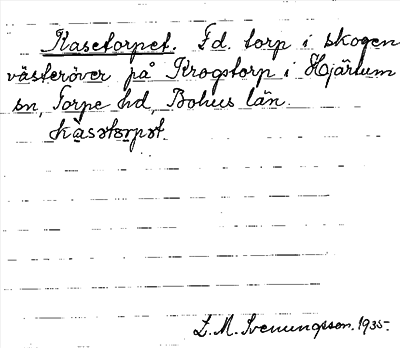 Kasetorpet. Fd. torp i skogen
västeröver på Krogstorp i Hjärtum
sn, Torpe hd, Bohus län.
kasətɔrpət.
L. M. Svenungsson. 1935.